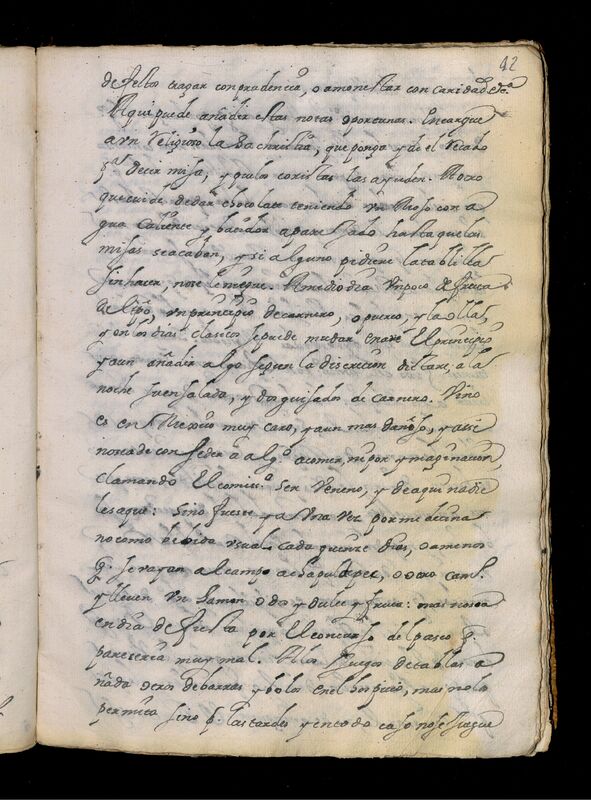 42
defectos tragar con prudencia, o amonestar con caridad etcª
Aqui puede añadir estas notas oportunas. Encargue
a un Religioso la Sachristia, que ponga y dé el recado
pª decir misa, y que los coristas las ayuden. A otro
que cuide de dar chocolate teniendo un Moso con a
gua caliente y bacidor aparejado hasta que las
misas se acaben, y si alguno pidiere la tablilla
sin hacer, no se le niegue. A medio dia un poco de fruta
del tpõ, un principio de carnero, o puerco, y la olla,
y en los dias clasicos se puede mudar el principio
y aun añadir algo segun la discrecion dictare, a la
noche su ensalada, y dos guisados de carnero. Vino
es en Mexico muy caro, y aun mas dañoso, y assi
no se ha de conseder a algº a comer, ni por ymaginacion,
clamando el comissº ser veneno, y de aqui nadie
le saque: sino fuesse ya una vez por medicina
no como bebida usual cada quinze dias, o a menos
q. se vayan al campo a chapultepec, o otro camp.
y lleven un Jamon o dos y dulce y fruta: mas no sea
en dia de fiesta por el concurso del paseo q.
pareseria muy mal. A los Juegos de tablas a
ñada otros de barras y bolos en el hospicio, mas no lo
permita sino p. las tardes y en todo caso no se juegue